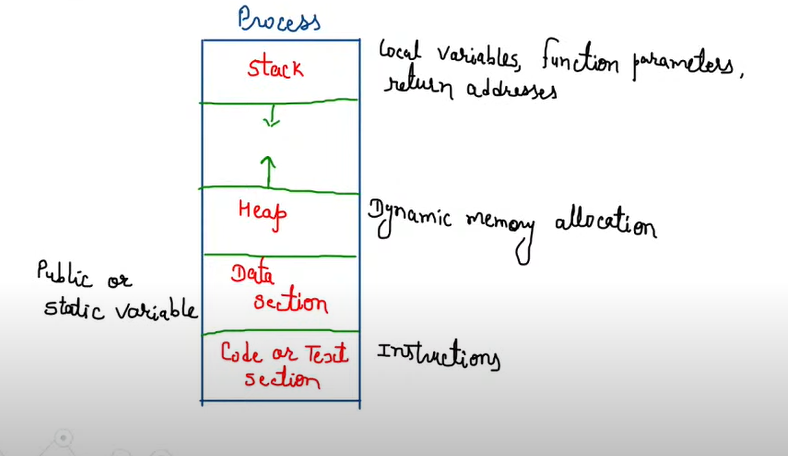 Process
Stack
Local variables, function parameters,
return addresses
Heap
Dynamic memory allocation
Data
section
Public or
static variable
Code or Text
section
Instructions